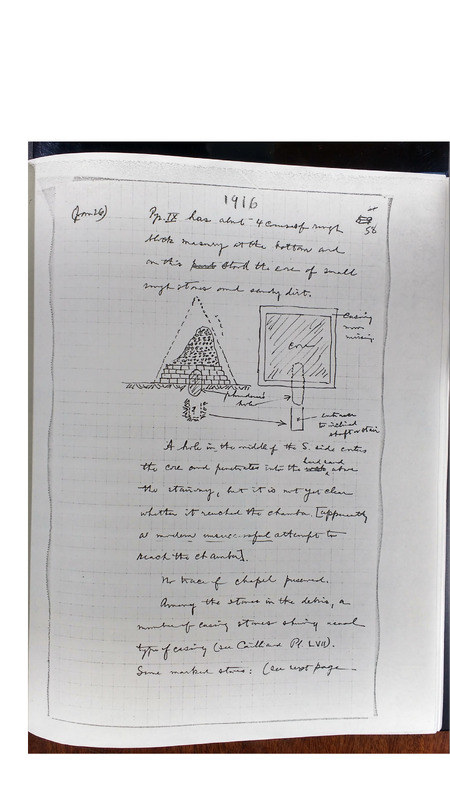 1916
(Jan 26)
58
Pyr. IX has about 4 courses of rough
block masonry at the bottom and
on this stood the core of small
rough stones and sandy dirt.
casing
now
missing
core
plunderer's
hole
entrance
to inclined
shaft or stair
A hole in the middle of the S. side enters
the core and penetrates into the hard sand above
the stairway, but it is not yet clear
whether it reached the chamber. [apparently
a modern unsuccessful attempt to
reach the chamber].
No trace of chapel preserved.
Among the stones in the debris, a
number of casing stones showing usual
type of casing (see Cailliaud Pl. LVII).
Some marked stones: (see next page